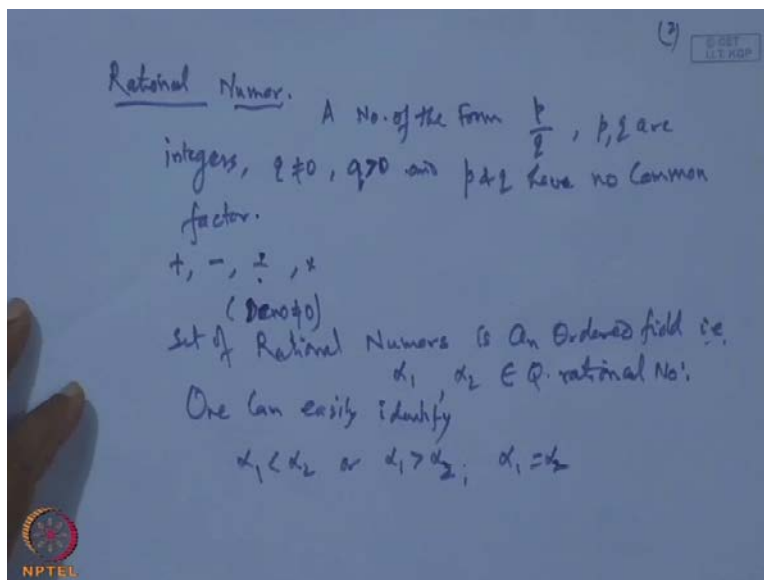 (2)
C-CET
I.I.T. KGP
Rational Numer.
A No. of the Form p/q , p,q are
integers, q≠0, q>0 and p & q have no Common
factor.
+, -, ÷, x
(Deno≠0)
Set of Rational Numers is An Ordered field i.e.
α₁, α₂ ∈ Q. rational No.
One Can easily identify
α₁<α₂ or α₁>α₂; α₁=α₂
NPTEL